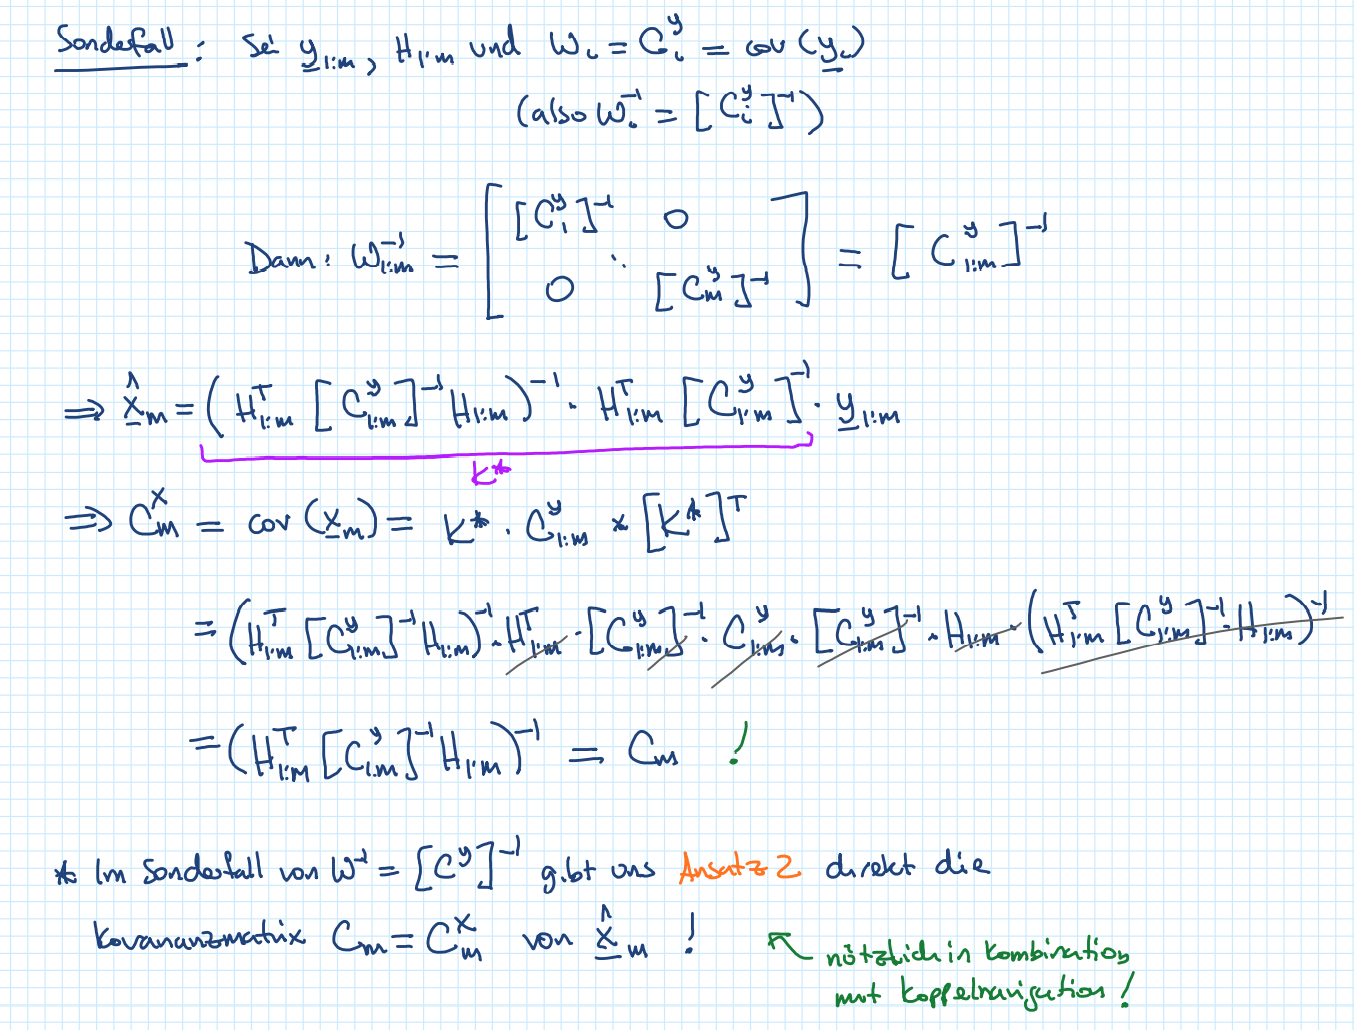 Sonderfall: Sei y_{1:m}, H_{1:m} und W_i = C_i^y = cov(y_i)
(also W_i^{-1} = [C_i^y]^{-1})
Dann: W_{1:m}^{-1} = [ [C_1^y]^{-1} 0 ⋱ 0 [C_m^y]^{-1} ] = [C_{1:m}^y]^{-1}
⇒ x̂_m = (H_{1:m}^T [C_{1:m}^y]^{-1} H_{1:m})^{-1} · H_{1:m}^T [C_{1:m}^y]^{-1} · y_{1:m}
K*
⇒ C_m^x = cov(x_m) = K* · C_{1:m}^y * [K*]^T
= (H_{1:m}^T [C_{1:m}^y]^{-1} H_{1:m})^{-1} · H_{1:m}^T · [C_{1:m}^y]^{-1} · C_{1:m}^y · [C_{1:m}^y]^{-1} · H_{1:m} · (H_{1:m}^T [C_{1:m}^y]^{-1} · H_{1:m})^{-1}
= (H_{1:m}^T [C_{1:m}^y]^{-1} H_{1:m})^{-1} = C_m !
* Im Sonderfall von W^{-1} = [C^y]^{-1} gibt uns Ansatz 2 direkt die
Kovarianzmatrix C_m = C_m^x von x̂_m !
nützlich in Kombination
mit Koppelnavigation!